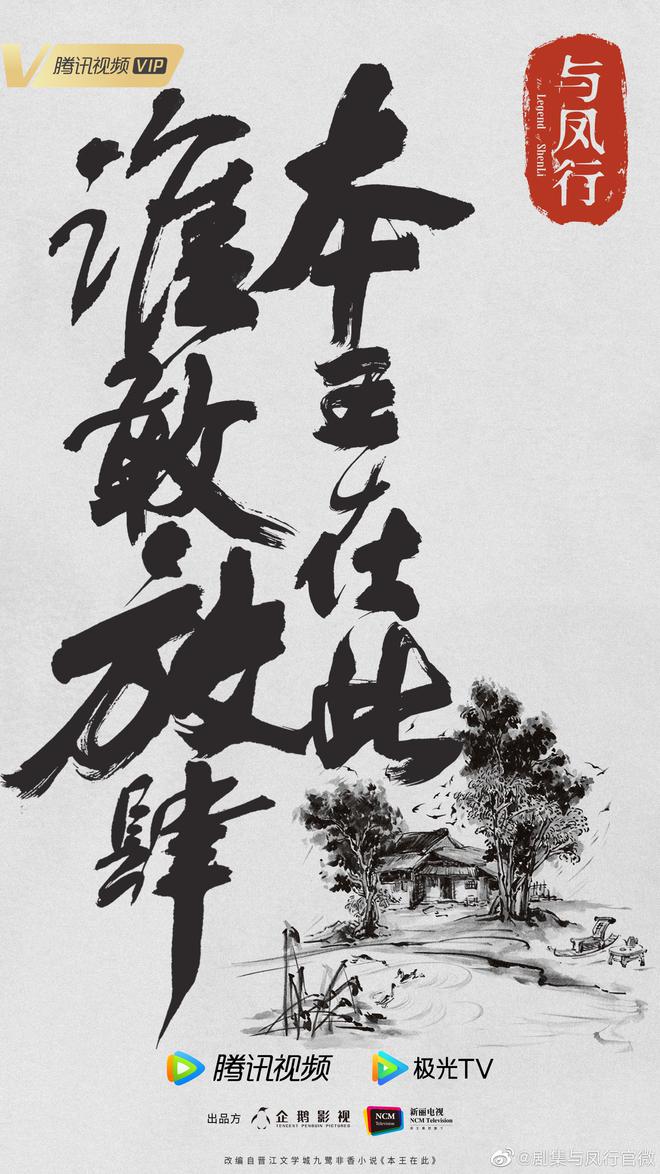 腾讯视频 VIP
与凤行
The Legend of ShenLi
本王在此
谁敢放肆
腾讯视频 极光TV
出品方 企鹅影视 TENCENT PENGUIN PICTURES NCM Television 新丽电视 NCM Television
改编自晋江文学城九鹭非香小说《本王在此》
@剧集与凤行官微